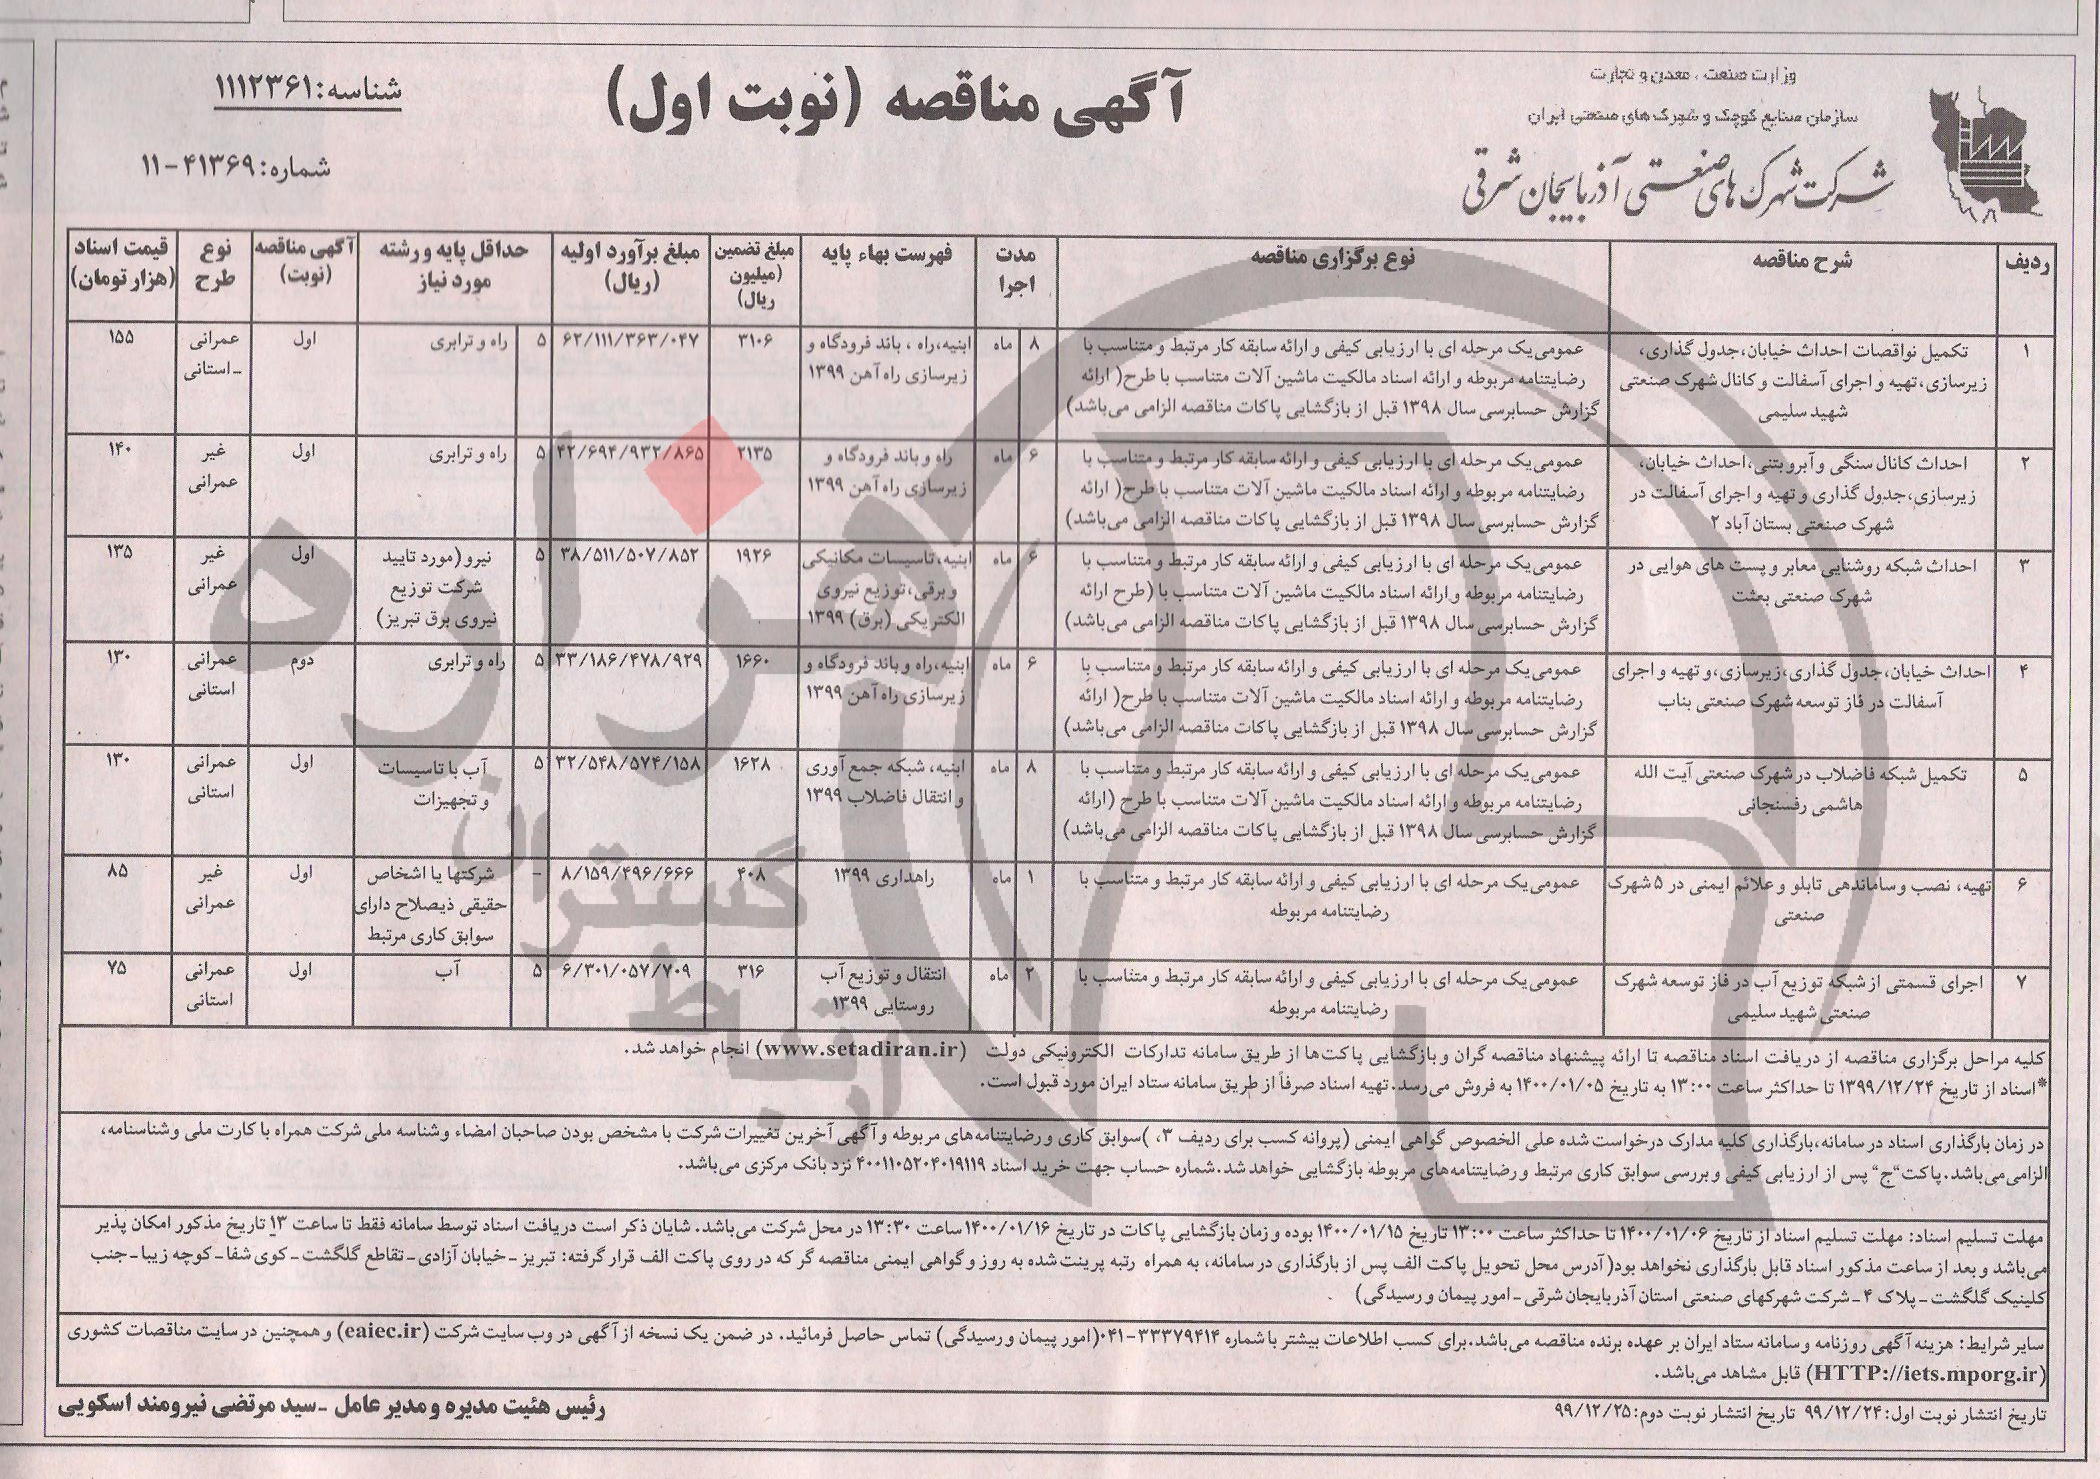 وزارت صنعت ، معدن و تجارت
سازمان صنایع کوچک و شهرک های صنعتی ایران
شرکت شهرک های صنعتی آذربایجان شرقی
آگهی مناقصه (نوبت اول)
شناسه: ۱۱۱۲۳۶۱
شماره: ۴۱۳۶۹-۱۱
ردیف شرح مناقصه نوع برگزاری مناقصه مدت اجرا فهرست بهاء پایه مبلغ تضمین (میلیون ریال) مبلغ برآورد اولیه (ریال) حداقل پایه و رشته مورد نیاز آگهی مناقصه (نوبت) نوع طرح قیمت اسناد (هزار تومان)
۱ تکمیل نواقصات احداث خیابان،جدول گذاری، زیرسازی،تهیه و اجرای آسفالت و کانال شهرک صنعتی شهید سلیمی عمومی یک مرحله ای با ارزیابی کیفی و ارائه سابقه کار مرتبط و متناسب با رضایتنامه مربوطه و ارائه اسناد مالکیت ماشین آلات متناسب با طرح( ارائه گزارش حسابرسی سال ۱۳۹۸ قبل از بازگشایی پاکات مناقصه الزامی می‌باشد) ۸ ماه ابنیه،راه ، باند فرودگاه و زیرسازی راه آهن ۱۳۹۹ ۳۱۰۶ ۶۲/۱۱۱/۳۶۳/۰۴۷ ۵ راه و ترابری اول عمرانی -استانی ۱۵۵
۲ احداث کانال سنگی و آبرو بتنی،احداث خیابان، زیرسازی،جدول گذاری و تهیه و اجرای آسفالت در شهرک صنعتی بستان آباد ۲ عمومی یک مرحله ای با ارزیابی کیفی و ارائه سابقه کار مرتبط و متناسب با رضایتنامه مربوطه و ارائه اسناد مالکیت ماشین آلات متناسب با طرح( ارائه گزارش حسابرسی سال ۱۳۹۸ قبل از بازگشایی پاکات مناقصه الزامی می‌باشد) ۶ ماه راه و باند فرودگاه و زیرسازی راه آهن ۱۳۹۹ ۲۱۳۵ ۴۲/۶۹۴/۹۳۲/۸۶۵ ۵ راه و ترابری اول غیر عمرانی ۱۴۰
۳ احداث شبکه روشنایی معابر و پست های هوایی در شهرک صنعتی بعثت عمومی یک مرحله ای با ارزیابی کیفی و ارائه سابقه کار مرتبط و متناسب با رضایتنامه مربوطه و ارائه اسناد مالکیت ماشین آلات متناسب با (طرح ارائه گزارش حسابرسی سال ۱۳۹۸ قبل از بازگشایی پاکات مناقصه الزامی می‌باشد) ۶ ماه ابنیه،تاسیسات مکانیکی و برقی،توزیع نیروی الکتریکی (برق) ۱۳۹۹ ۱۹۲۶ ۳۸/۵۱۱/۵۰۷/۸۵۲ ۵ نیرو (مورد تایید شرکت توزیع نیروی برق تبریز) اول غیر عمرانی ۱۳۵
۴ احداث خیابان،جدول گذاری،زیرسازی،و تهیه و اجرای آسفالت در فاز توسعه شهرک صنعتی بناب عمومی یک مرحله ای با ارزیابی کیفی و ارائه سابقه کار مرتبط و متناسب با رضایتنامه مربوطه و ارائه اسناد مالکیت ماشین آلات متناسب با طرح( ارائه گزارش حسابرسی سال ۱۳۹۸ قبل از بازگشایی پاکات مناقصه الزامی می‌باشد) ۶ ماه ابنیه،راه و باند فرودگاه و زیرسازی راه آهن ۱۳۹۹ ۱۶۶۰ ۳۳/۱۸۶/۴۷۸/۹۲۹ ۵ راه و ترابری دوم عمرانی استانی ۱۳۰
۵ تکمیل شبکه فاضلاب در شهرک صنعتی آیت الله هاشمی رفسنجانی عمومی یک مرحله ای با ارزیابی کیفی و ارائه سابقه کار مرتبط و متناسب با رضایتنامه مربوطه و ارائه اسناد مالکیت ماشین آلات متناسب با طرح (ارائه گزارش حسابرسی سال ۱۳۹۸ قبل از بازگشایی پاکات مناقصه الزامی می‌باشد) ۸ ماه ابنیه، شبکه جمع آوری و انتقال فاضلاب ۱۳۹۹ ۱۶۲۸ ۳۲/۵۴۸/۵۷۴/۱۵۸ ۵ آب با تاسیسات و تجهیزات اول عمرانی استانی ۱۳۰
۶ تهیه، نصب و ساماندهی تابلو و علائم ایمنی در ۵ شهرک صنعتی عمومی یک مرحله ای با ارزیابی کیفی و ارائه سابقه کار مرتبط و متناسب با رضایتنامه مربوطه ۱ ماه راهداری ۱۳۹۹ ۴۰۸ ۸/۱۵۹/۴۹۶/۶۶۶ - شرکتها یا اشخاص حقیقی ذیصلاح دارای سوابق کاری مرتبط اول غیر عمرانی ۸۵
۷ اجرای قسمتی از شبکه توزیع آب در فاز توسعه شهرک صنعتی شهید سلیمی عمومی یک مرحله ای با ارزیابی کیفی و ارائه سابقه کار مرتبط و متناسب با رضایتنامه مربوطه ۲ ماه انتقال و توزیع آب روستایی ۱۳۹۹ ۳۱۶ ۶/۳۰۱/۰۵۷/۷۰۹ ۵ آب اول عمرانی استانی ۷۵
کلیه مراحل برگزاری مناقصه از دریافت اسناد مناقصه تا ارائه پیشنهاد مناقصه گران و بازگشایی پاکت‌ها از طریق سامانه تدارکات الکترونیکی دولت (www.setadiran.ir) انجام خواهد شد.
*اسناد از تاریخ ۱۳۹۹/۱۲/۲۴ تا حداکثر ساعت ۱۳:۰۰ به تاریخ ۱۴۰۰/۰۱/۰۵ به فروش می‌رسد.تهیه اسناد صرفاً از طریق سامانه ستاد ایران مورد قبول است.
در زمان بارگذاری اسناد در سامانه،بارگذاری کلیه مدارک درخواست شده علی الخصوص گواهی ایمنی (پروانه کسب برای ردیف ۳، )سوابق کاری و رضایتنامه‌های مربوطه و آگهی آخرین تغییرات شرکت با مشخص بودن صاحبان امضاء وشناسه ملی شرکت همراه با کارت ملی وشناسنامه،
الزامی می‌باشد.پاکت "ج" پس از ارزیابی کیفی و بررسی سوابق کاری مرتبط و رضایتنامه‌های مربوطه بازگشایی خواهد شد.شماره حساب جهت خرید اسناد ۴۰۰۱۱۰۵۲۰۴۰۱۹۱۱۹ نزد بانک مرکزی می‌باشد.
مهلت تسلیم اسناد: مهلت تسلیم اسناد از تاریخ ۱۴۰۰/۰۱/۰۶ تا حداکثر ساعت ۱۳:۰۰ تاریخ ۱۴۰۰/۰۱/۱۵ بوده و زمان بازگشایی پاکات در تاریخ ۱۴۰۰/۰۱/۱۶ ساعت ۱۳:۳۰ در محل شرکت می‌باشد. شایان ذکر است دریافت اسناد توسط سامانه فقط تا ساعت ۱۳ تاریخ مذکور امکان پذیر
می‌باشد و بعد از ساعت مذکور اسناد قابل بارگذاری نخواهد بود( آدرس محل تحویل پاکت الف پس از بارگذاری در سامانه، به همراه رتبه پرینت شده به روز و گواهی ایمنی مناقصه گر که در روی پاکت الف قرار گرفته: تبریز - خیابان آزادی- تقاطع گلگشت - کوی شفا - کوچه زیبا - جنب
کلینیک گلگشت - پلاک ۴ - شرکت شهرکهای صنعتی استان آذربایجان شرقی - امور پیمان و رسیدگی)
سایر شرایط: هزینه آگهی روزنامه و سامانه ستاد ایران بر عهده برنده مناقصه می‌باشد.برای کسب اطلاعات بیشتر با شماره ۳۳۳۷۹۴۱۴-۰۴۱(امور پیمان و رسیدگی) تماس حاصل فرمائید. در ضمن یک نسخه از آگهی در وب سایت شرکت (eaiec.ir) و همچنین در سایت مناقصات کشوری
(HTTP://iets.mporg.ir) قابل مشاهد می‌باشد.
تاریخ انتشار نوبت اول: ۹۹/۱۲/۲۴ تاریخ انتشار نوبت دوم: ۹۹/۱۲/۲۵
رئیس هئیت مدیره و مدیر عامل - سید مرتضی نیرومند اسکویی